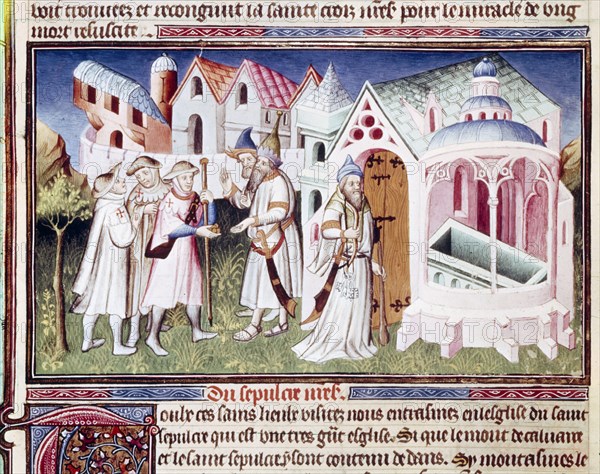 voit trouvee et recongnut la sainte croiz nr̃e pour le miracle de ung
mort resuscite
Du sepulcre nr̃e
Toute ces sains lieux visitez nous entrasmes en leglise du saint
sepulcre qui est vne tres gr̃t eglise. Si que le mont de caluaire
et le saint sepulcre y sont contenu dedans. Sy montasmes le